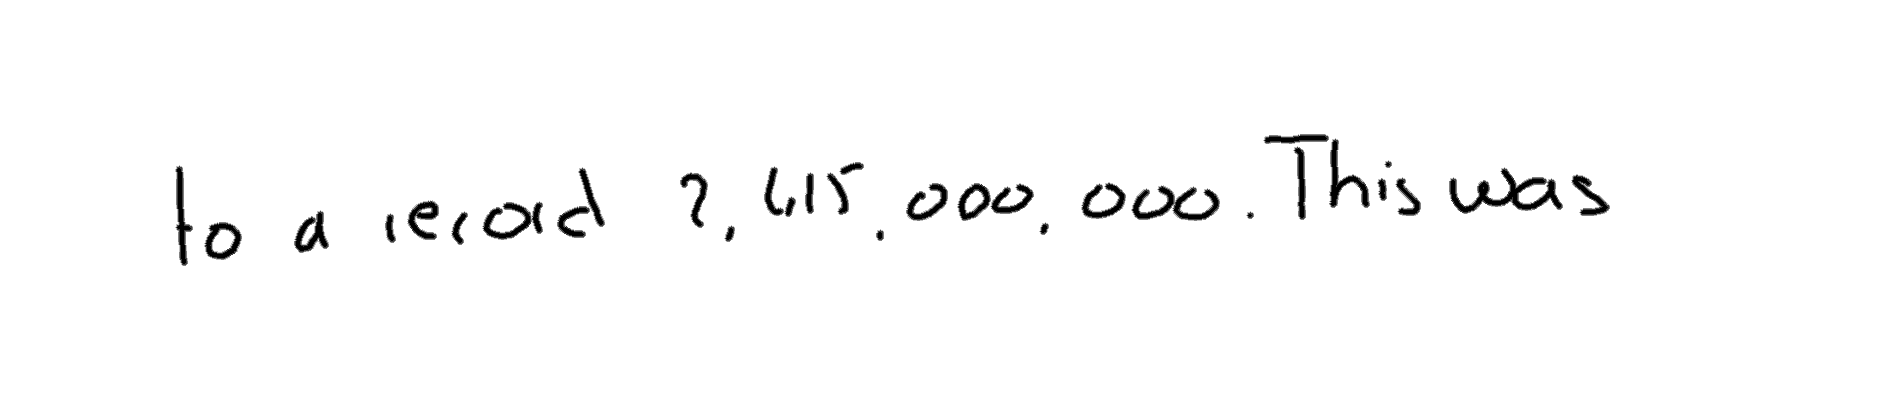 to a record 7,415,000,000. This was